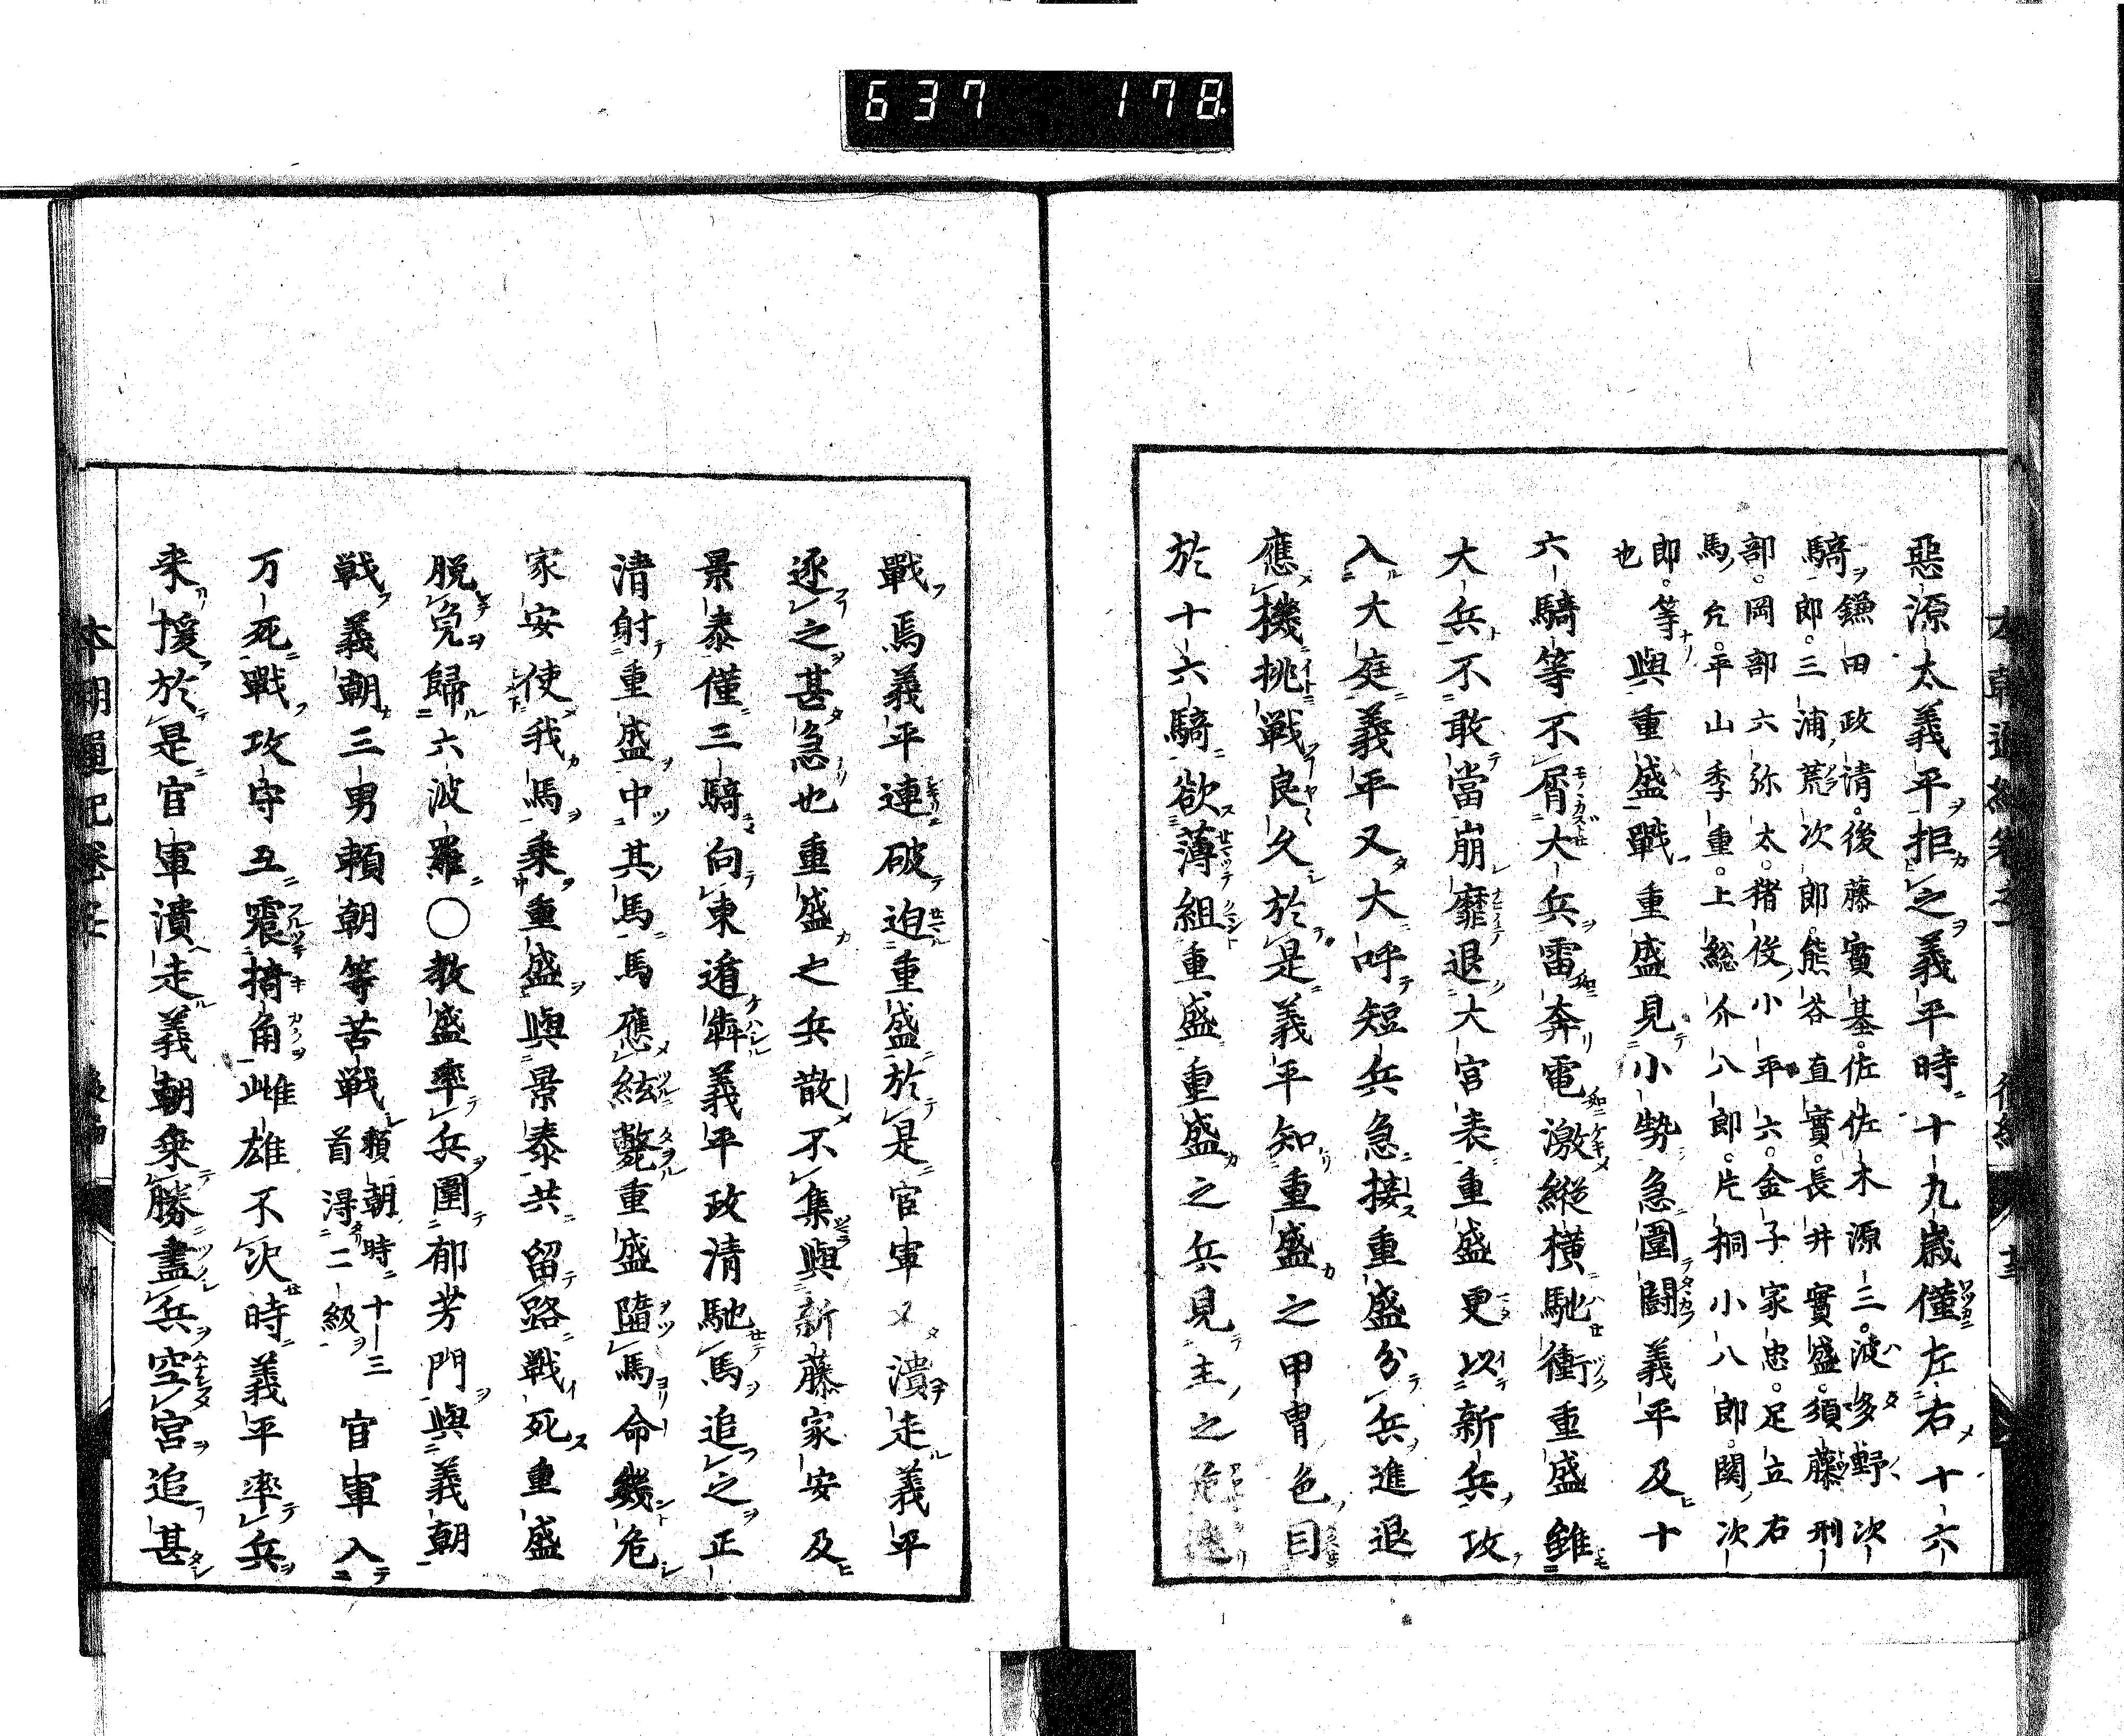 637 178
惡源太義平拒之義平時十九歳僅左右十六
騎鎌田政清。後藤實基。佐佐木源三。波多野次
郎。三浦荒次郎。熊谷直實。長井實盛。須藤刑
部。岡部六弥太。猪俣小平六。金子家忠。足立右
馬允。平山季重。上総介八郎。片桐小八郎。関次
郎。等也
與重盛戰重盛見小勢急圍闘義平及十
六騎等不屑大兵雷奔電激縱橫馳衝重盛雖
大兵不敢當崩靡退大宮表重盛更以新兵攻
入大庭義平又大呼短兵急接重盛分兵進退
應機挑戦良久於是義平知重盛之甲冑色目
於十六騎欲薄組重盛重盛之兵見主之危
戰焉義平連破迫重盛於是官軍又潰走義平
逐之甚急也重盛之兵散不集與新藤家安及
景泰僅三騎向東遁犇義平政清馳馬追之正
清射重盛中其馬馬應絃斃重盛墮馬命幾危
家安使我馬乗重盛與景泰共留路戦死重盛
脱免歸六波羅〇教盛率兵圍郁芳門與義朝
戦義朝三男頼朝等苦戦頼朝時十三
首得二級官軍入
万死戰攻守互震掎角雌雄不決時義平率兵
来援於是官軍潰走義朝乗勝盡兵空宮追甚